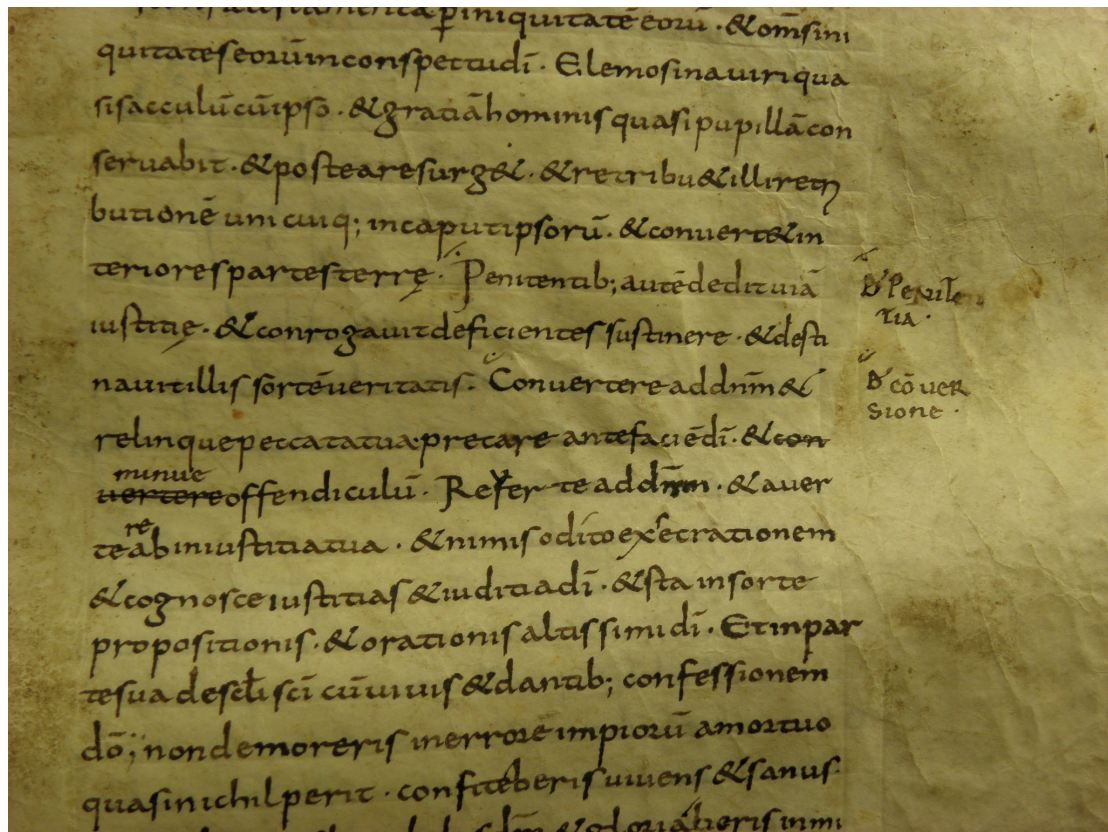 p̄iniquitatē eorū · &om̅sini
quitateseorūinconspectudī · Elemosinauiriqua
sisacculūcūipsō · &gratiāhominisquasipupillācon
seruabit · &postearesurg& · &retribu&illiretri
butionē unicuiq; incaputipsorū · &conuert&in
teriorespartesterrę · Penitentib; autēdedituiā
iustitię · &conrogauitdeficientessustinere · &desti
nauitillissortēueritatis · Conuertereaddn̄m&
relinquepeccatatua·precare antefaciēdī · &con
minue
uertereoffendiculū · Reuer te addn̄m · &auer
re
teabiniustitiatua · &nimisoditoexsecrationem
&cognosceiustitias&iuditiadī · &sta insorte
propositionis · &orationisaltissimidī · Etinpar
tesuadesclīscī cūuiuis&dantib; confessionem
dō; nondemoreris inerroreimpiorū amortuo
quasinichilperit · confiteberisuiuens&sanus·
De
tia ·
De cōuer
sione ·